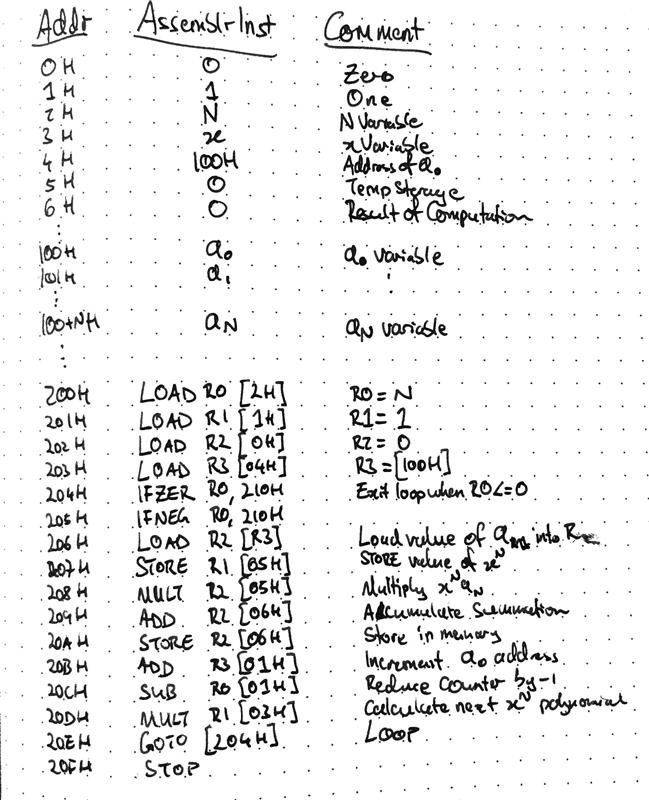 Addr Assemblr Inst Comment
0H 0 Zero
1H 1 One
2H N N Variable
3H x x Variable
4H 100H Address of a₀
5H 0 Temp Storage
6H 0 Result of Computation
⋮
100H a₀ a₀ variable
101H a₁ ⋮
⋮
100+NH aN aN variable
⋮
200H LOAD R0 [2H] R0 = N
201H LOAD R1 [1H] R1 = 1
202H LOAD R2 [0H] R2 = 0
203H LOAD R3 [04H] R3 = [100H]
204H IFZER R0, 210H Exit loop when R0<=0
205H IFNEG R0, 210H
206H LOAD R2 [R3] Load value of into
207H STORE R1 [05H] STORE value of xᴺ
208H MULT R2 [05H] Multiply xᴺ aN
209H ADD R2 [06H] Accumulate Summation
20AH STORE R2 [06H] Store in memory
20BH ADD R3 [01H] Increment a₀ address
20CH SUB R0 [01H] Reduce Counter by -1
20DH MULT R1 [03H] Calculate next xᴺ polynomial
20EH GOTO [204H] LOOP
20FH STOP